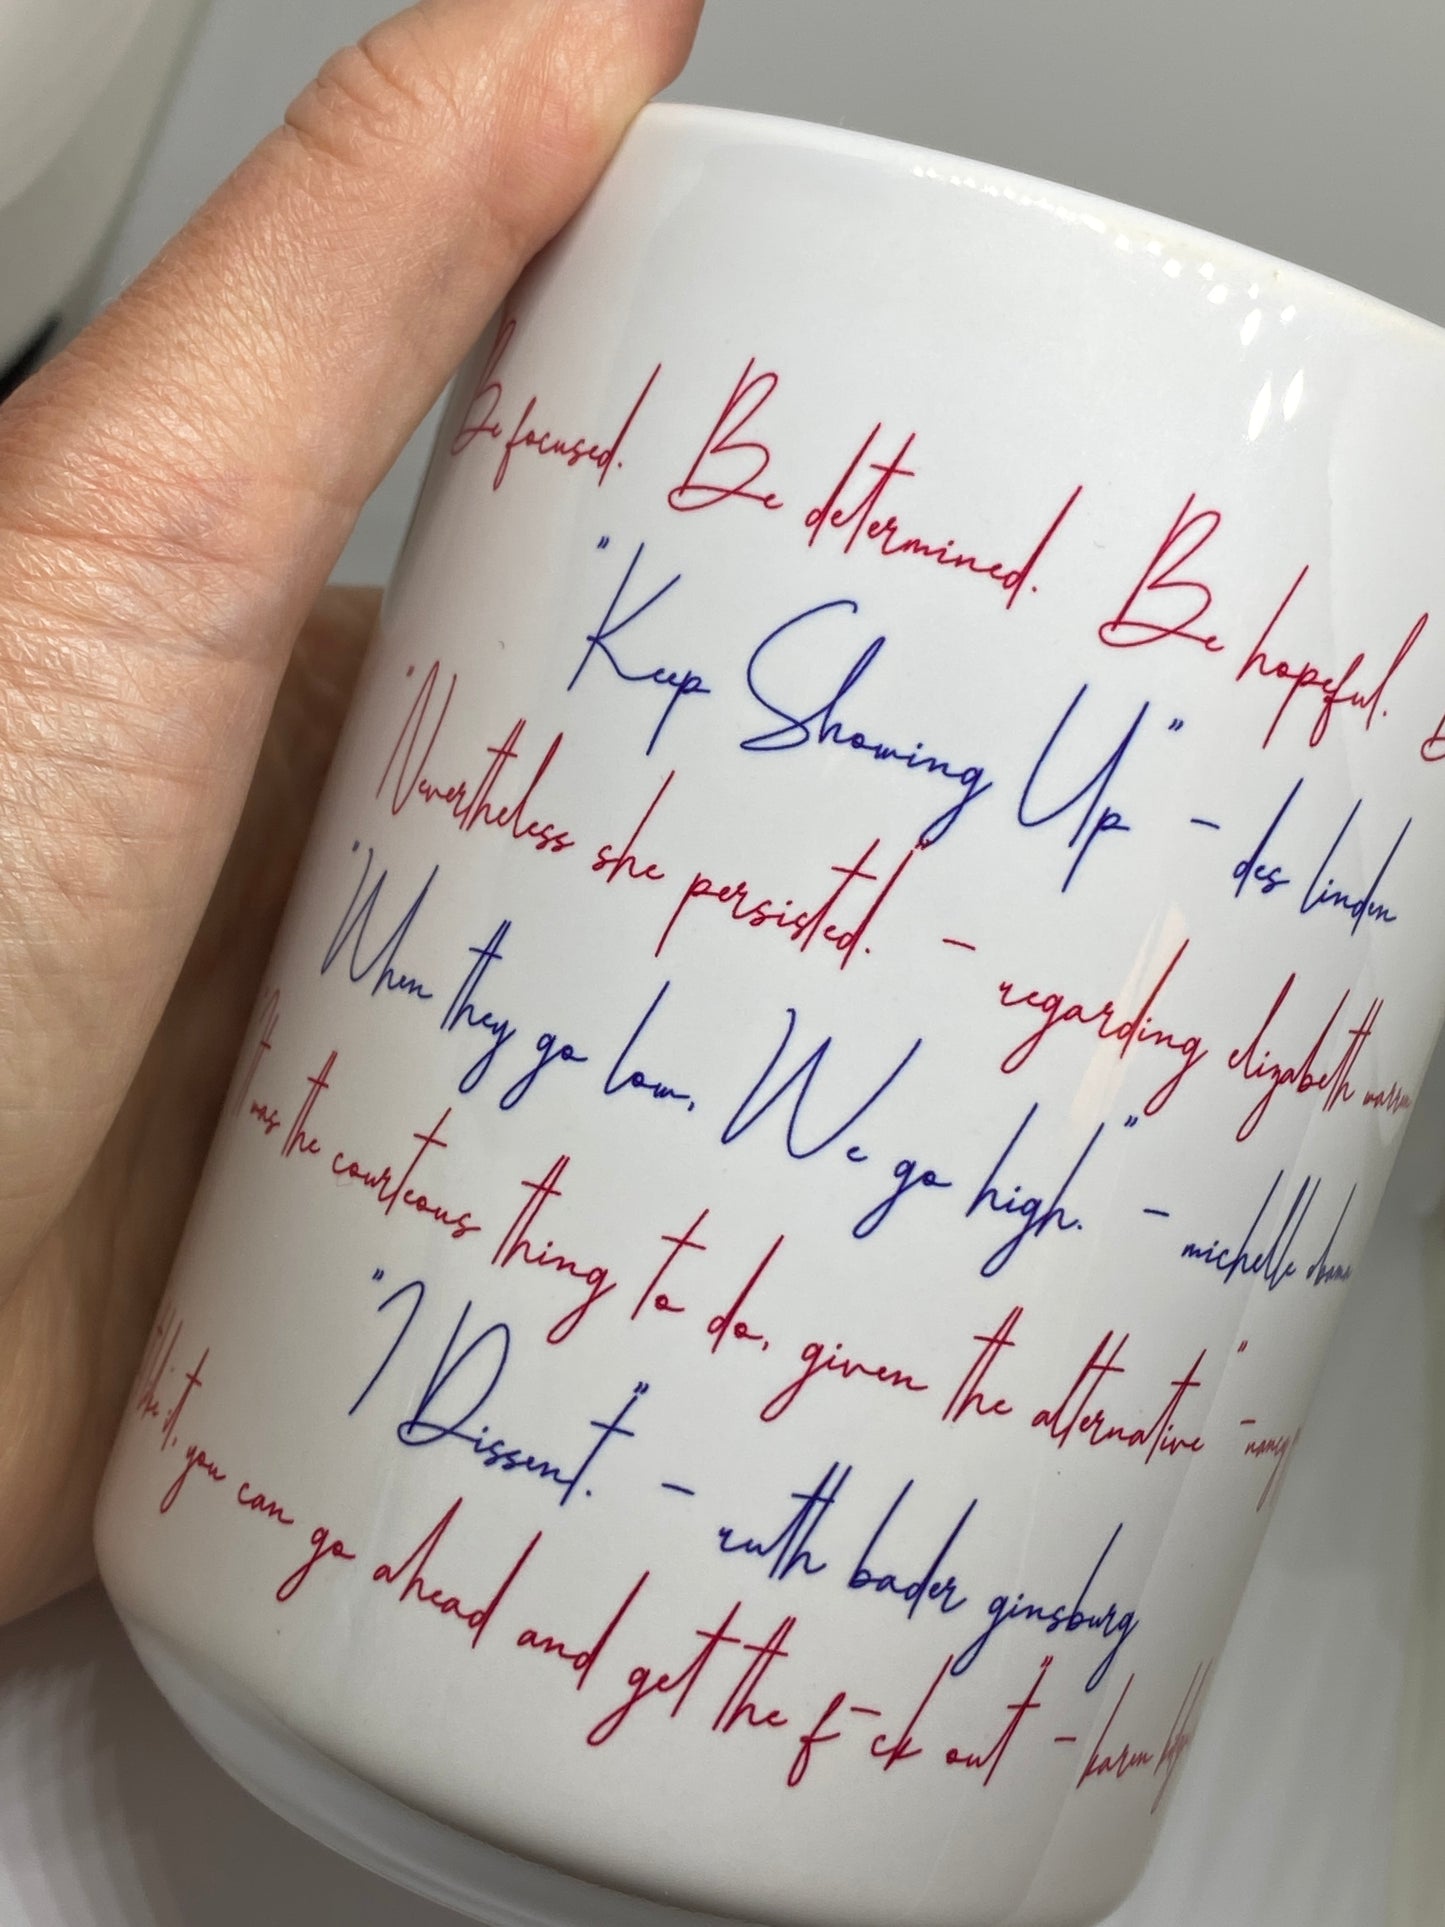 Be focused. Be determined. Be hopeful.
"Keep Showing Up" - des linden
"Nevertheless she persisted." - regarding elizabeth warren
"When they go low, We go high." - michelle obama
"It was the courteous thing to do, given the alternative" - nancy
"I Dissent." - ruth bader ginsburg
like it, you can go ahead and get the f-ck out" - karen